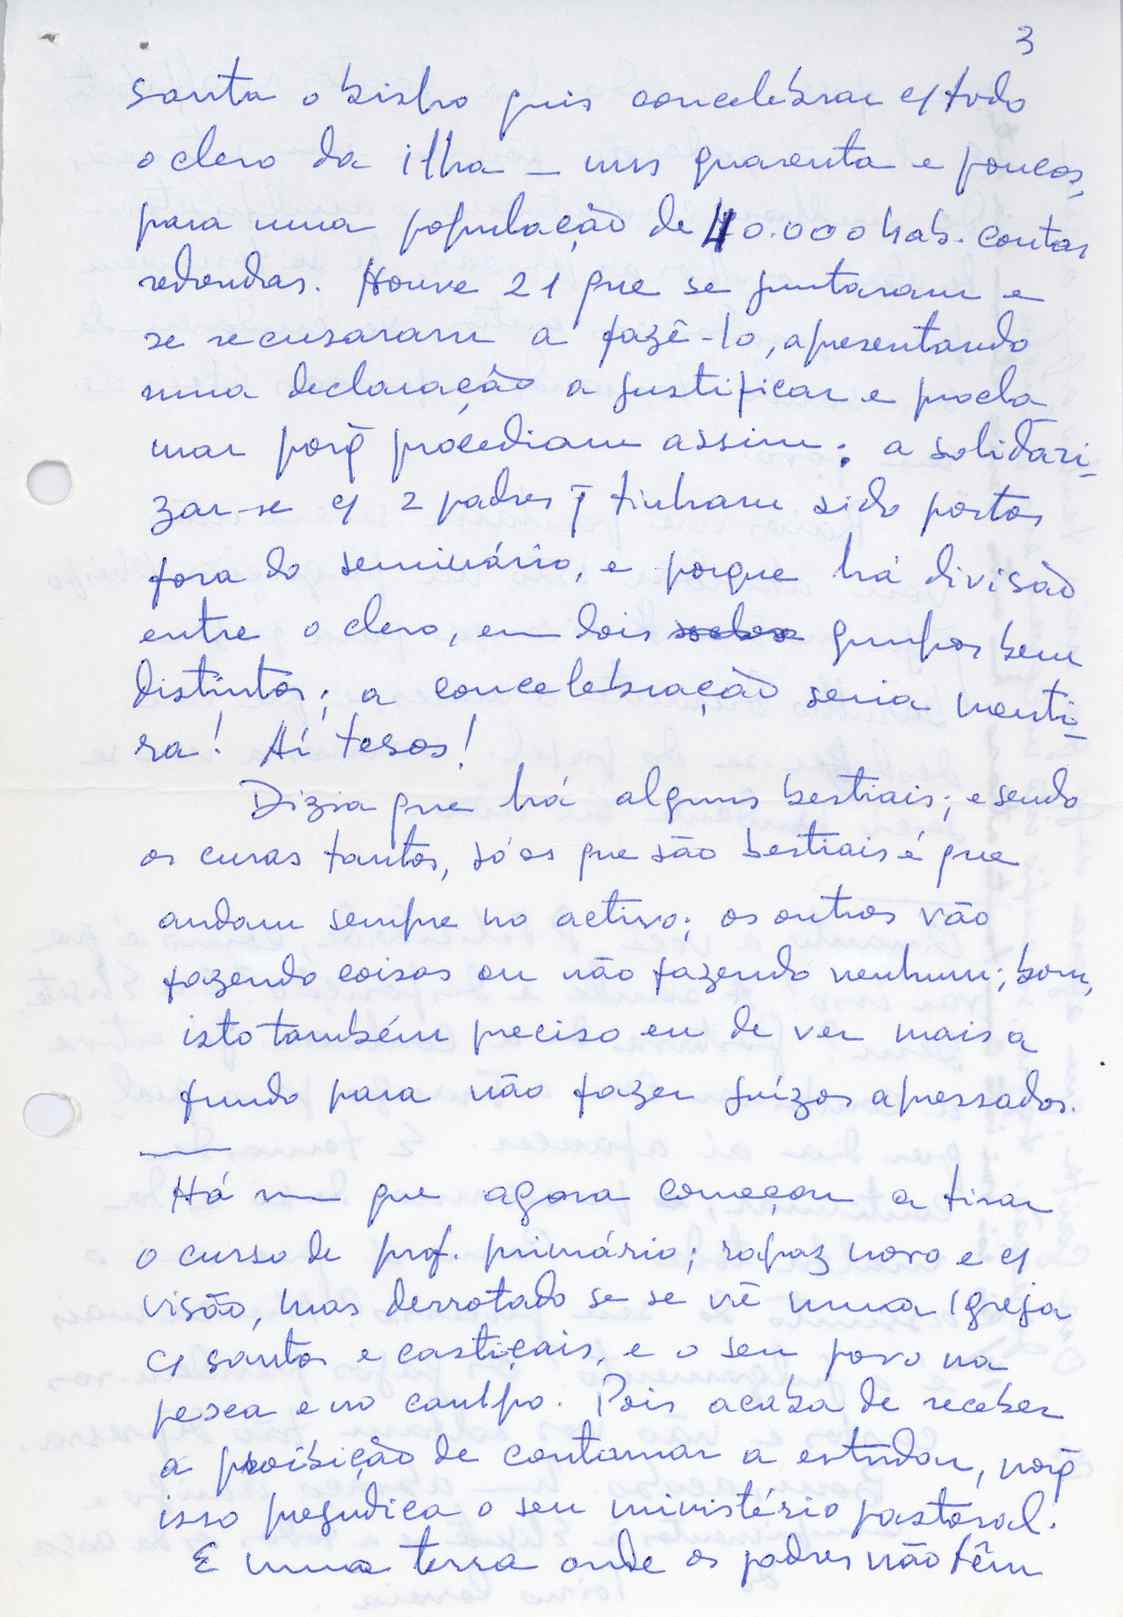 3
santa o bispo quis concelebrar c/ todo
o clero da ilha – uns quarenta e poucos,
para uma população de 40.000 hab. contas
redondas. Houve 21 que se juntaram e
se recusaram a fazê-lo, apresentando
uma declaração a justificar e procla
mar porq̃ procediam assim: a solidari-
zar-se c/ 2 padres q̃ tinham sido postos
fora do seminário, e porque há divisão
entre o clero, em dois grupos bem
distintos; a concelebração seria menti-
ra! Aí tesos!
Dizia que há alguns bestiais; e sendo
os curas tantos, só os que são bestiais é que
andam sempre no activo; os outros vão
fazendo coisas ou não fazendo nenhum; bom,
isto também preciso eu de ver mais a
fundo para não fazer juízos apressados.
Há um que agora começou a tirar
o curso de prof. primário; rapaz novo e c/
visão, mas derrotado se se vê numa Igreja
c/ santos e castiçais, e o seu povo na
pesca e no campo. Pois acaba de receber
a proibição de continuar a estudar, porq̃
isso prejudica o seu ministério pastoral!
E numa terra onde os padres não têm